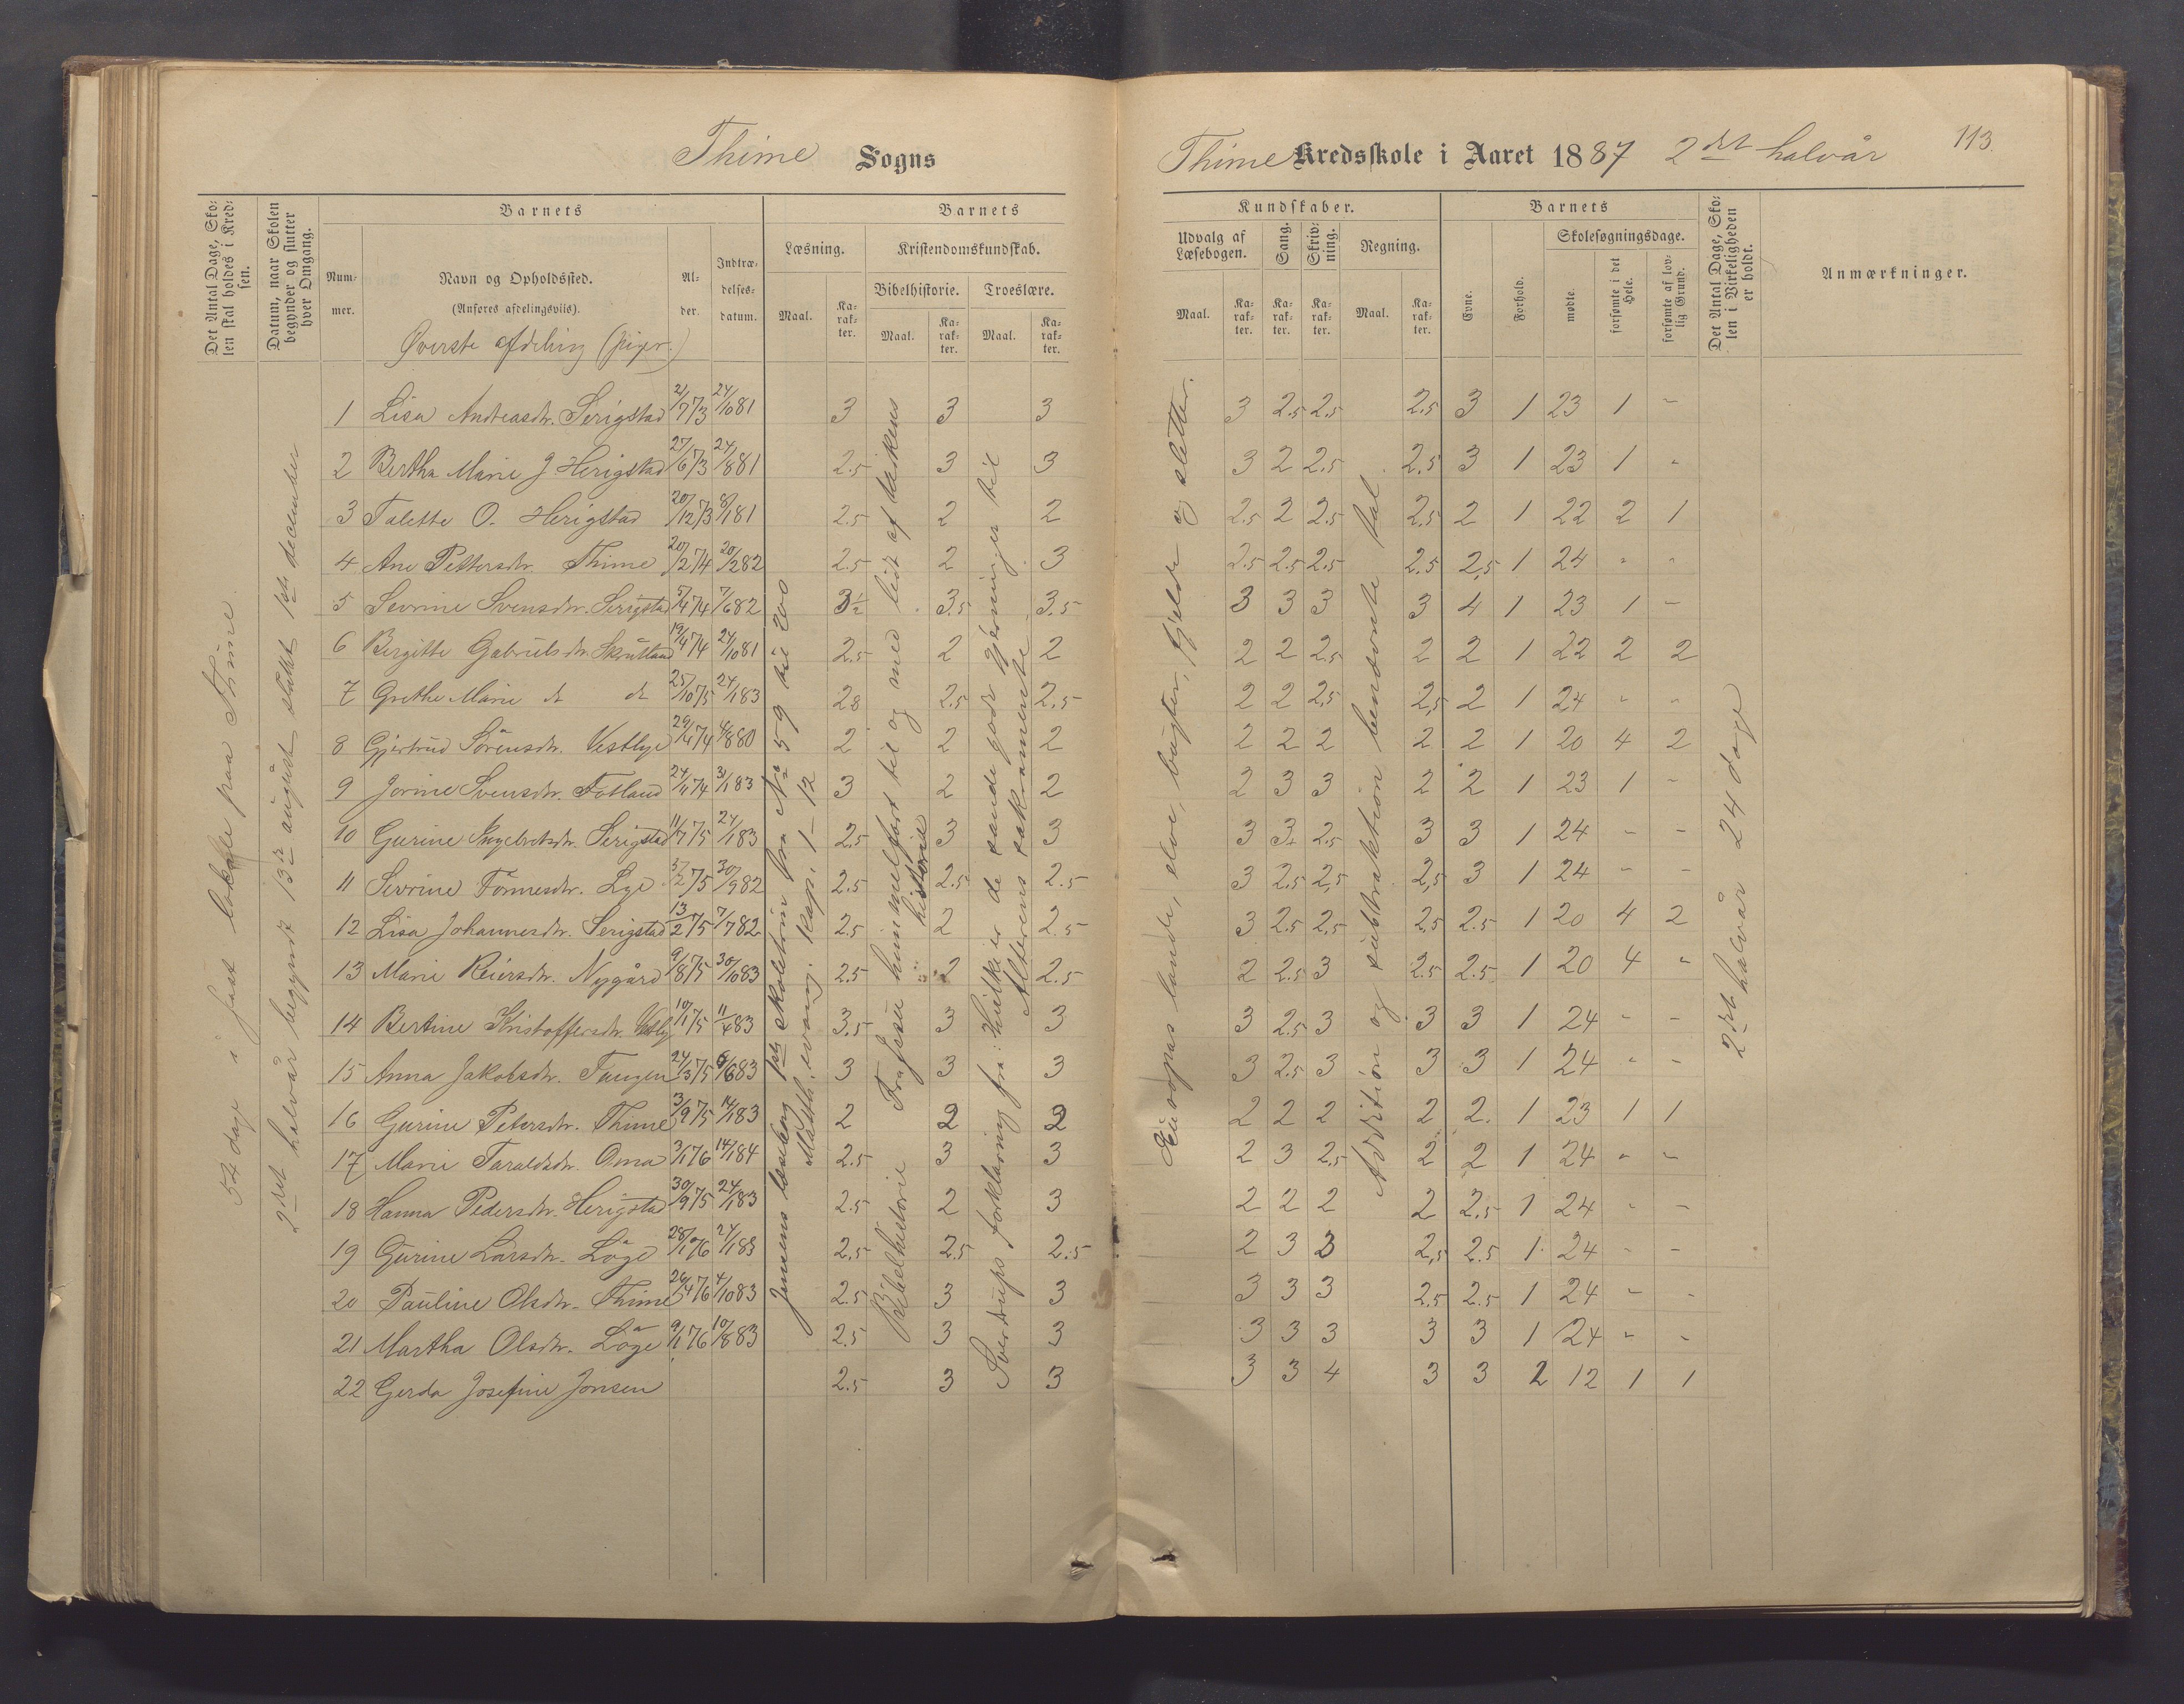 Thime Sogns
Thime Kredsskole i Aaret 1887 2det halvår
113.
Det Antal Dage, Sko-
len skal holdes i Kred-
sen.
Datum, naar Skolen
begynder og slutter
hver Omgang.
Barnets
Num-
mer.
Navn og Opholdssted.
(Anføres afdelingsviis).
Øverste afdeling (piger.)
Al-
der.
Indtræ-
delses-
datum.
Barnets
Læsning.
Maal.
Ka-
rak-
ter.
Kristendomskundskab.
Bibelhistorie.
Maal.
Ka-
rak-
ter.
Troeslære.
Maal.
Ka-
rak-
ter.
Kundskaber.
Udvalg af
Læsebogen.
Maal.
Ka-
rak-
ter.
Sang.
Ka-
rak-
ter.
Skriv-
ning.
Ka-
rak-
ter.
Regning.
Maal.
Ka-
rak-
ter.
Barnets
Evne.
Forhold.
Skolesøgningsdage.
mødte.
forsømte i det
Hele.
forsømte af lov-
lig Grund.
Det Antal Dage, Sko-
len i Virkeligheden
er holdt.
Anmærkninger.
54 dage i fast lokale paa Thime.
2det halvår begyndt 13de august sluttet 1ste december
Jensens læsebog 1ste skoletrin fra No 59 til 200
Matth. evang. kap. 1–12
Bibelhistorie Fra Jesu himmelfart til og med lidt af kirkens
historie
Sverdrups forklaring fra: Hvilke er de sande gode gjerninger til
Alterens sakramente
Europas lande, elve, bugter, fjelde og sletter.
Addition og subtraktion benævnte tal.
2det halvår 24 dage
1 Lisa Andreasdtr. Serigstad 21/7 73 24/10 81 3 3 3 3 2.5 2.5 2.5 3 1 23 1 -
2 Bertha Marie J Herigstad 27/6 73 24/8 81 2.5 3 3 3 2 2.5 2.5 3 1 23 1 -
3 Talette O. Herigstad 20/12 73 8/1 81 2.5 2 2 2.5 2 2.5 2.5 2 1 22 2 1
4 Ane Pettersdtr. Thime 20/2 74 20/2 82 2.5 2 3 2.5 2.5 2.5 2.5 2.5 1 24 - -
5 Sevrine Svensdtr. Serigstad 5/4 74 7/6 82 3½ 3.5 3.5 3 3 3 3 4 1 23 1 -
6 Birgitte Gabrielsdtr. Skrutland 19/4 74 24/10 81 2.5 2 2 2 2 2.5 2 2 1 22 2 2
7 Grethe Marie dt dt 25/10 75 24/1 83 2.8 2.5 2.5 2 2 2.5 2.5 2 1 24 - -
8 Gjertrud Sørensdtr. Vestlye 29/4 74 4/8 80 2 2 2 2 2 2 2 2 1 20 4 2
9 Jorine Svensdtr. Fotland 24/11 74 31/1 83 3 2 2 2 3 3 2 2 1 23 1 -
10 Gurine Ingebretsdtr. Serigstad 11/7 75 24/1 83 2.5 3 3 3 3+ 2.5 3 3 1 24 - -
11 Sevrine Tønnesdtr. Lye 5/2 75 30/9 82 2.5 2.5 2.5 3 2.5 2.5 2.5 3 1 24 - -
12 Lisa Johannesdtr. Serigstad 13/2 75 7/7 82 2.5 2 2.5 3 2.5 2.5 2.5 2.5 1 20 4 2
13 Marie Reiersdtr. Nygård 9/8 75 30/10 83 2.5 2 2.5 2 2.5 3 2.5 2.5 1 20 4 -
14 Bertine Kristoffersdtr. Vestly 10/11 75 11/4 83 3.5 3 3 3 2.5 3 3 3 1 24 - -
15 Anna Jakobsdtr. Tungen 24/3 75 6/6 83 3 3 3 3 2.5 3 3 3 1 24 - -
16 Gurine Petersdtr. Thime 3/9 75 14/1 83 2 2 2 2 2 2 2 2. 1 23 1 1
17 Marie Taraldsdtr. Oma 3/1 76 14/1 84 2.5 3 3 2 3 2.5 2 2 1 24 - -
18 Hanna Pedersdtr. Herigstad 30/9 75 24/1 83 2.5 2 3 2 2 2 2 2.5 1 24 - -
19 Gurine Larsdtr. Løge 28/1 76 24/1 83 2.5 2.5 2.5 2 3 3 2.5 2.5 1 24 - -
20 Pauline Olsdtr. Thime 26/4 76 4/10 83 2.5 3 3 3 3 3 2.5 2.5 1 24 - -
21 Martha Olsdtr. Løge 9/1 76 10/8 83 2.5 3 3 3 3 3 3 3 1 24 - -
22 Gerda Josefine Jonsen 2.5 3 3 3 3 4 3 3 2 12 1 1